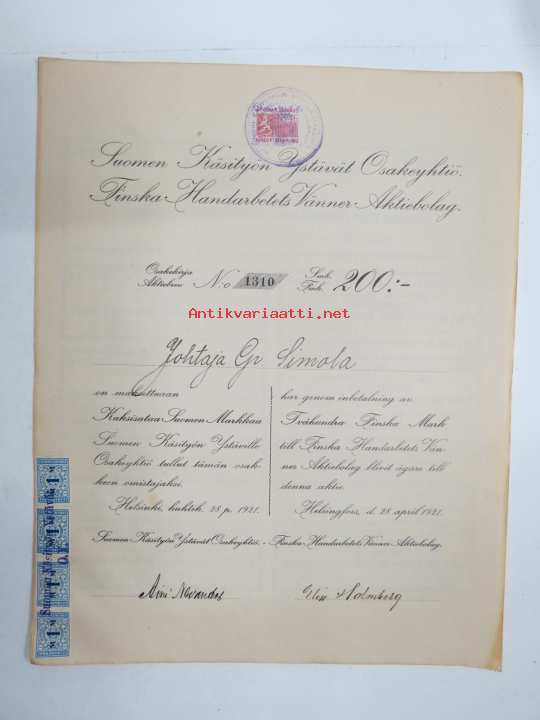 Suomen Käsityön Ystävät Osakeyhtiö.
Finska Handarbetets Vänner Aktiebolag.
Osakekirja
Aktiebrev
N:o 1310
Smk.
Fmk.
200:-
Antikvariaatti.net
Johtaja Gr. Simola
on maksettuaan
Kaksisataa Suomen Markkaa
Suomen Käsityön Ystäville
Osakeyhtiö tullut tämän osak-
keen omistajaksi.
Helsinki, huhtik. 28 p. 1921.
har genom inbetalning av
Tvåhundra Finska Mark
till Finska Handarbetets Vän-
ner Aktiebolag blivit ägare till
denna aktie.
Helsingfors, d. 28 april 1921.
Suomen Käsityön Ystävät Osakeyhtiö. - Finska Handarbetets Vänner Aktiebolag.
Holmberg
1 M
1 M
1 M
1 M